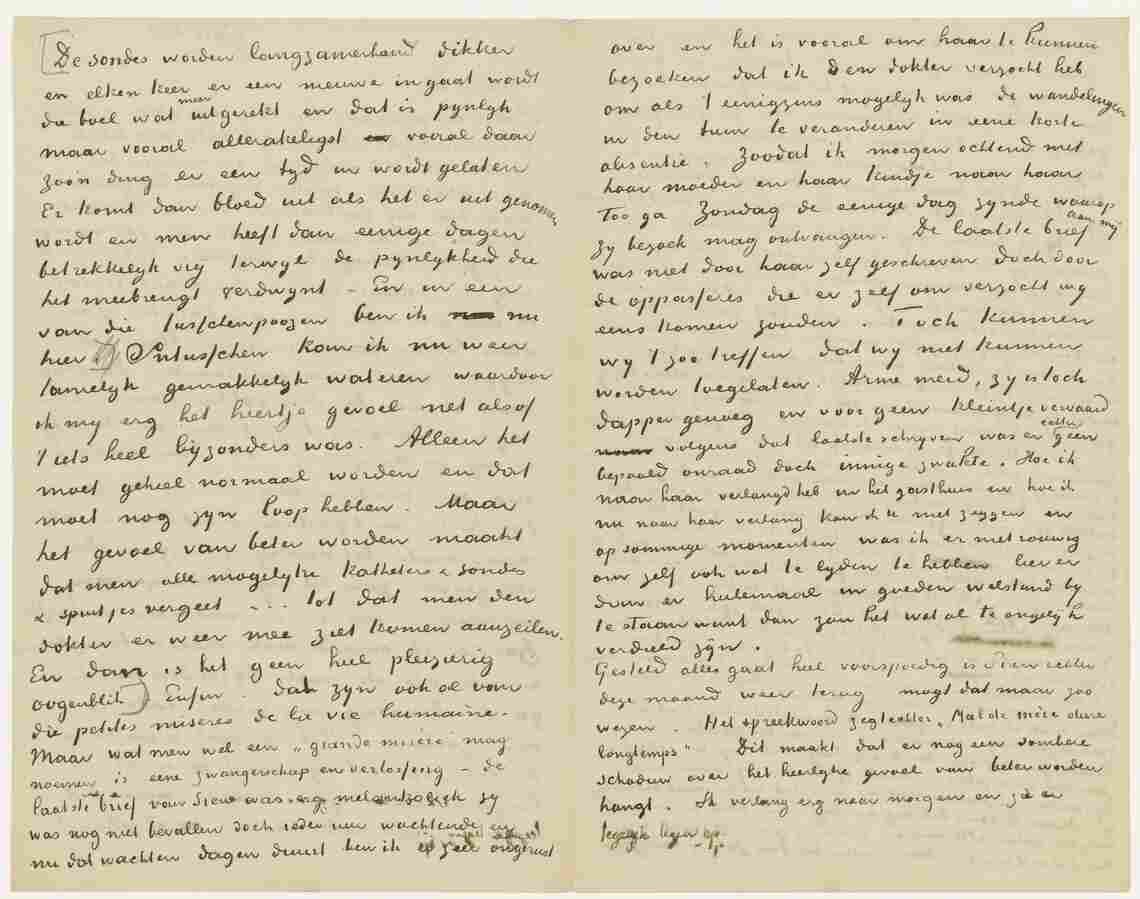 De sondes worden langzamerhand dikker
en elken keer er een nieuwe in gaat wordt
die boel wat meer uitgerekt en dat is pynlyk
maar vooral allerakeligst vooral daar
zoo'n ding er een tyd in wordt gelaten
Er komt dan bloed uit als het er uit genomen
wordt en men heeft dan eenige dagen
betrekkelyk vry terwyl de pynlykheid die
het meebrengt verdwynt – En in een
van die tusschenpoozen ben ik nu
hier Intusschen kan ik nu weer
tamelyk gemakkelyk wateren waardoor
ik my erg het heertje gevoel net alsof
't iets heel byzonders was. Alleen het
moet geheel normaal worden en dat
moet nog zyn loop hebben. Maar
het gevoel van beter worden maakt
dat men alle mogelyke katheters & sondes
& spuitjes vergeet ... tot dat men den
dokter er weer mee ziet komen aanzeilen.
En dan is het geen heel plezierig
oogenblik) Enfin. Dat zyn ook al van
die petites misères de la vie humaine.
Maar wat men wel een „grande misère" mag
noemen is eene zwangerschap en verlossing – de
laatste brief van Sien was erg melankoliek zy
was nog niet bevallen doch ieder uur wachtende en
nu dat wachten dagen duurt ben ik er zeer ongerust
over en het is vooral om haar te kunnen
bezoeken dat ik den dokter verzocht heb
om als 't eenigzins mogelyk was de wandelingen
in den tuin te veranderen in eene korte
absentie. Zoodat ik morgen ochtend met
haar moeder en haar kindje naar haar
toe ga Zondag de eenige dag zynde waarop
zy bezoek mag ontvangen. De laatste brief aan my
was niet door haar zelf geschreven doch door
de oppasseres die er zelf om verzocht wy
eens komen zouden. Toch kunnen
wy 't zoo treffen dat wy niet kunnen
worden toegelaten. Arme meid, zy is toch
dapper genoeg en voor geen kleintje vervaard
volgens dat laatste schryven was er echter geen
bepaald onraad doch innige zwakte. Hoe ik
naar haar verlangd heb in het gasthuis en hoe ik
nu naar haar verlang kan ik U niet zeggen en
op sommige momenten was ik er niet rouwig
om zelf ook wat te lyden te hebben liever
dan er heelemaal in goeden welstand by
te staan want dan zou het wel al te ongelyk
verdeeld zyn.
Gesteld alles gaat heel voorspoedig is Sien echter
deze maand weer terug mogt dat maar zoo
wezen. Het spreekwoord zegt echter „Mal de mère dure
longtemps" Dit maakt dat er nog een sombere
schaduw over het heerlyke gevoel van beter worden
hangt. Ik verlang erg naar morgen en zie er
tegelyk tegen op.